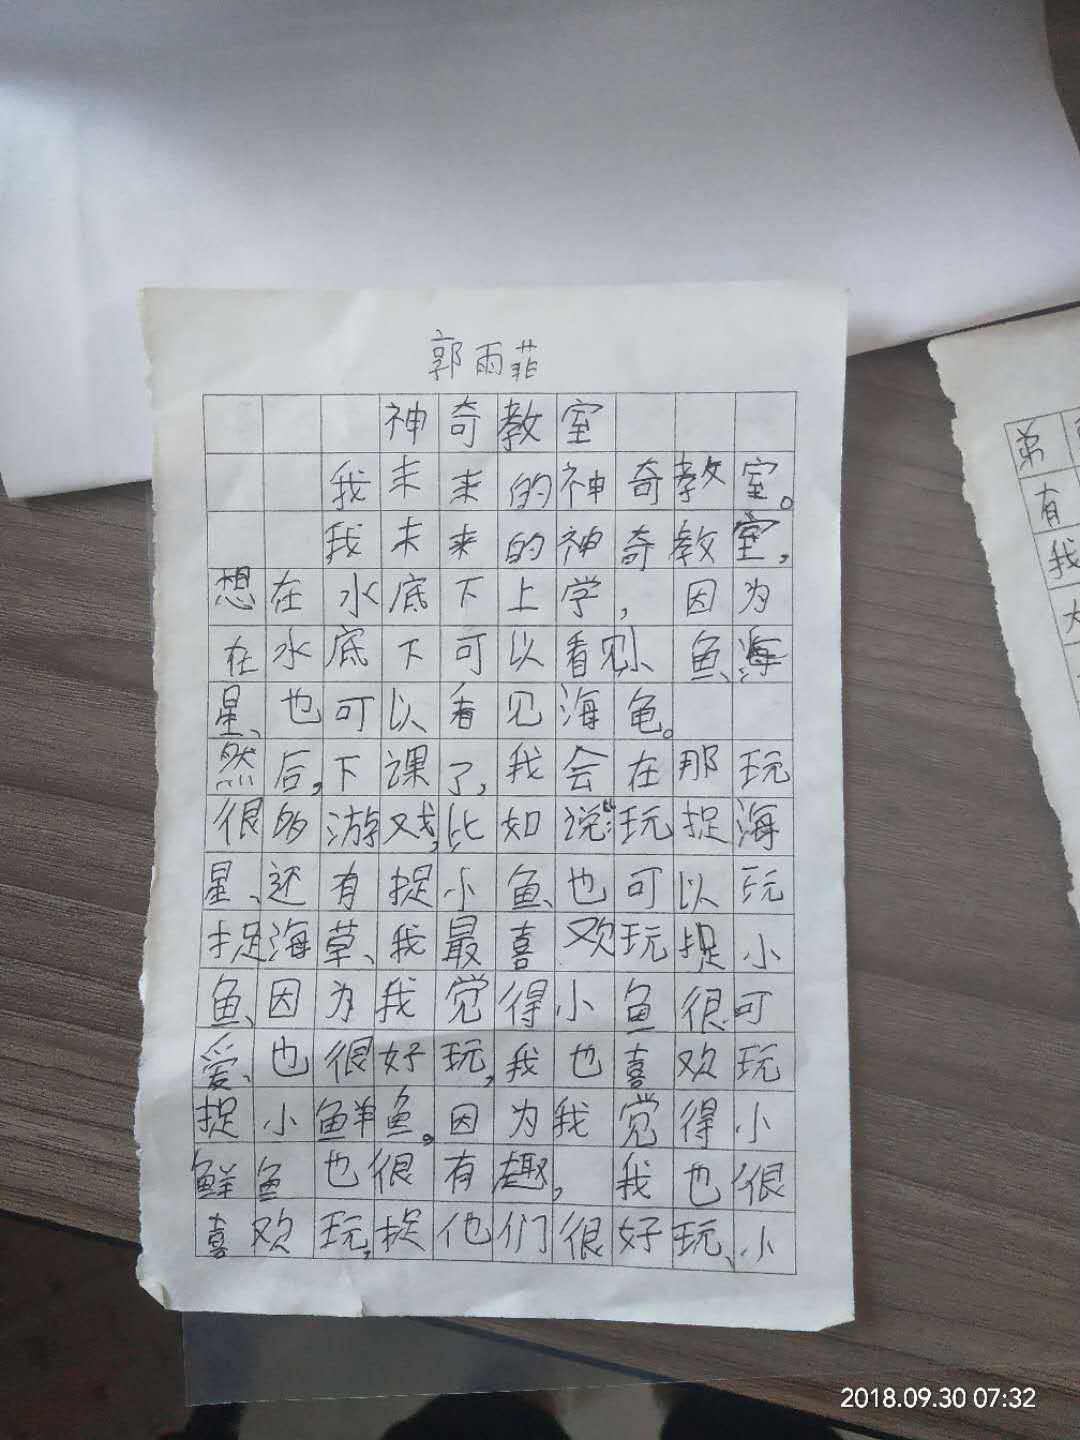 郭雨菲
神奇教室
我未来的神奇教室。
我未来的神奇教室,
想在水底下上学,因为
在水底下可以看见小、鱼、海
星、也可以看见海龟。
然后,下课了,我会在那玩
很的游戏,比如说:玩捉海
星、还有捉小鱼、也可以玩
捉海草、我最喜欢玩捉小
鱼、因为我觉得小鱼很可
爱、也很好玩,我也喜欢玩
捉小鲜鱼。因为我觉得小
鲜鱼也很有趣,我也很
喜欢玩,捉他们很好玩、小
弟
有
我
2018.09.30 07:32